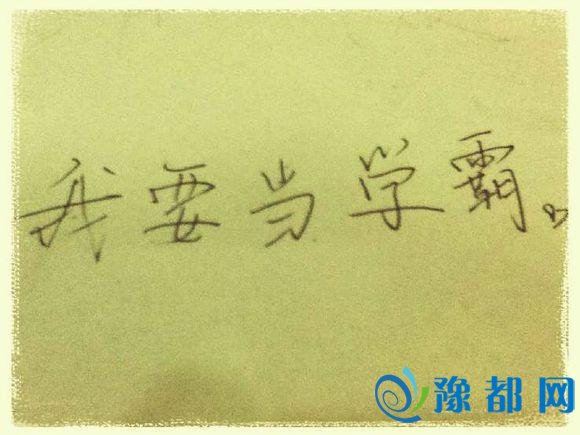 我要当学霸。
豫都网